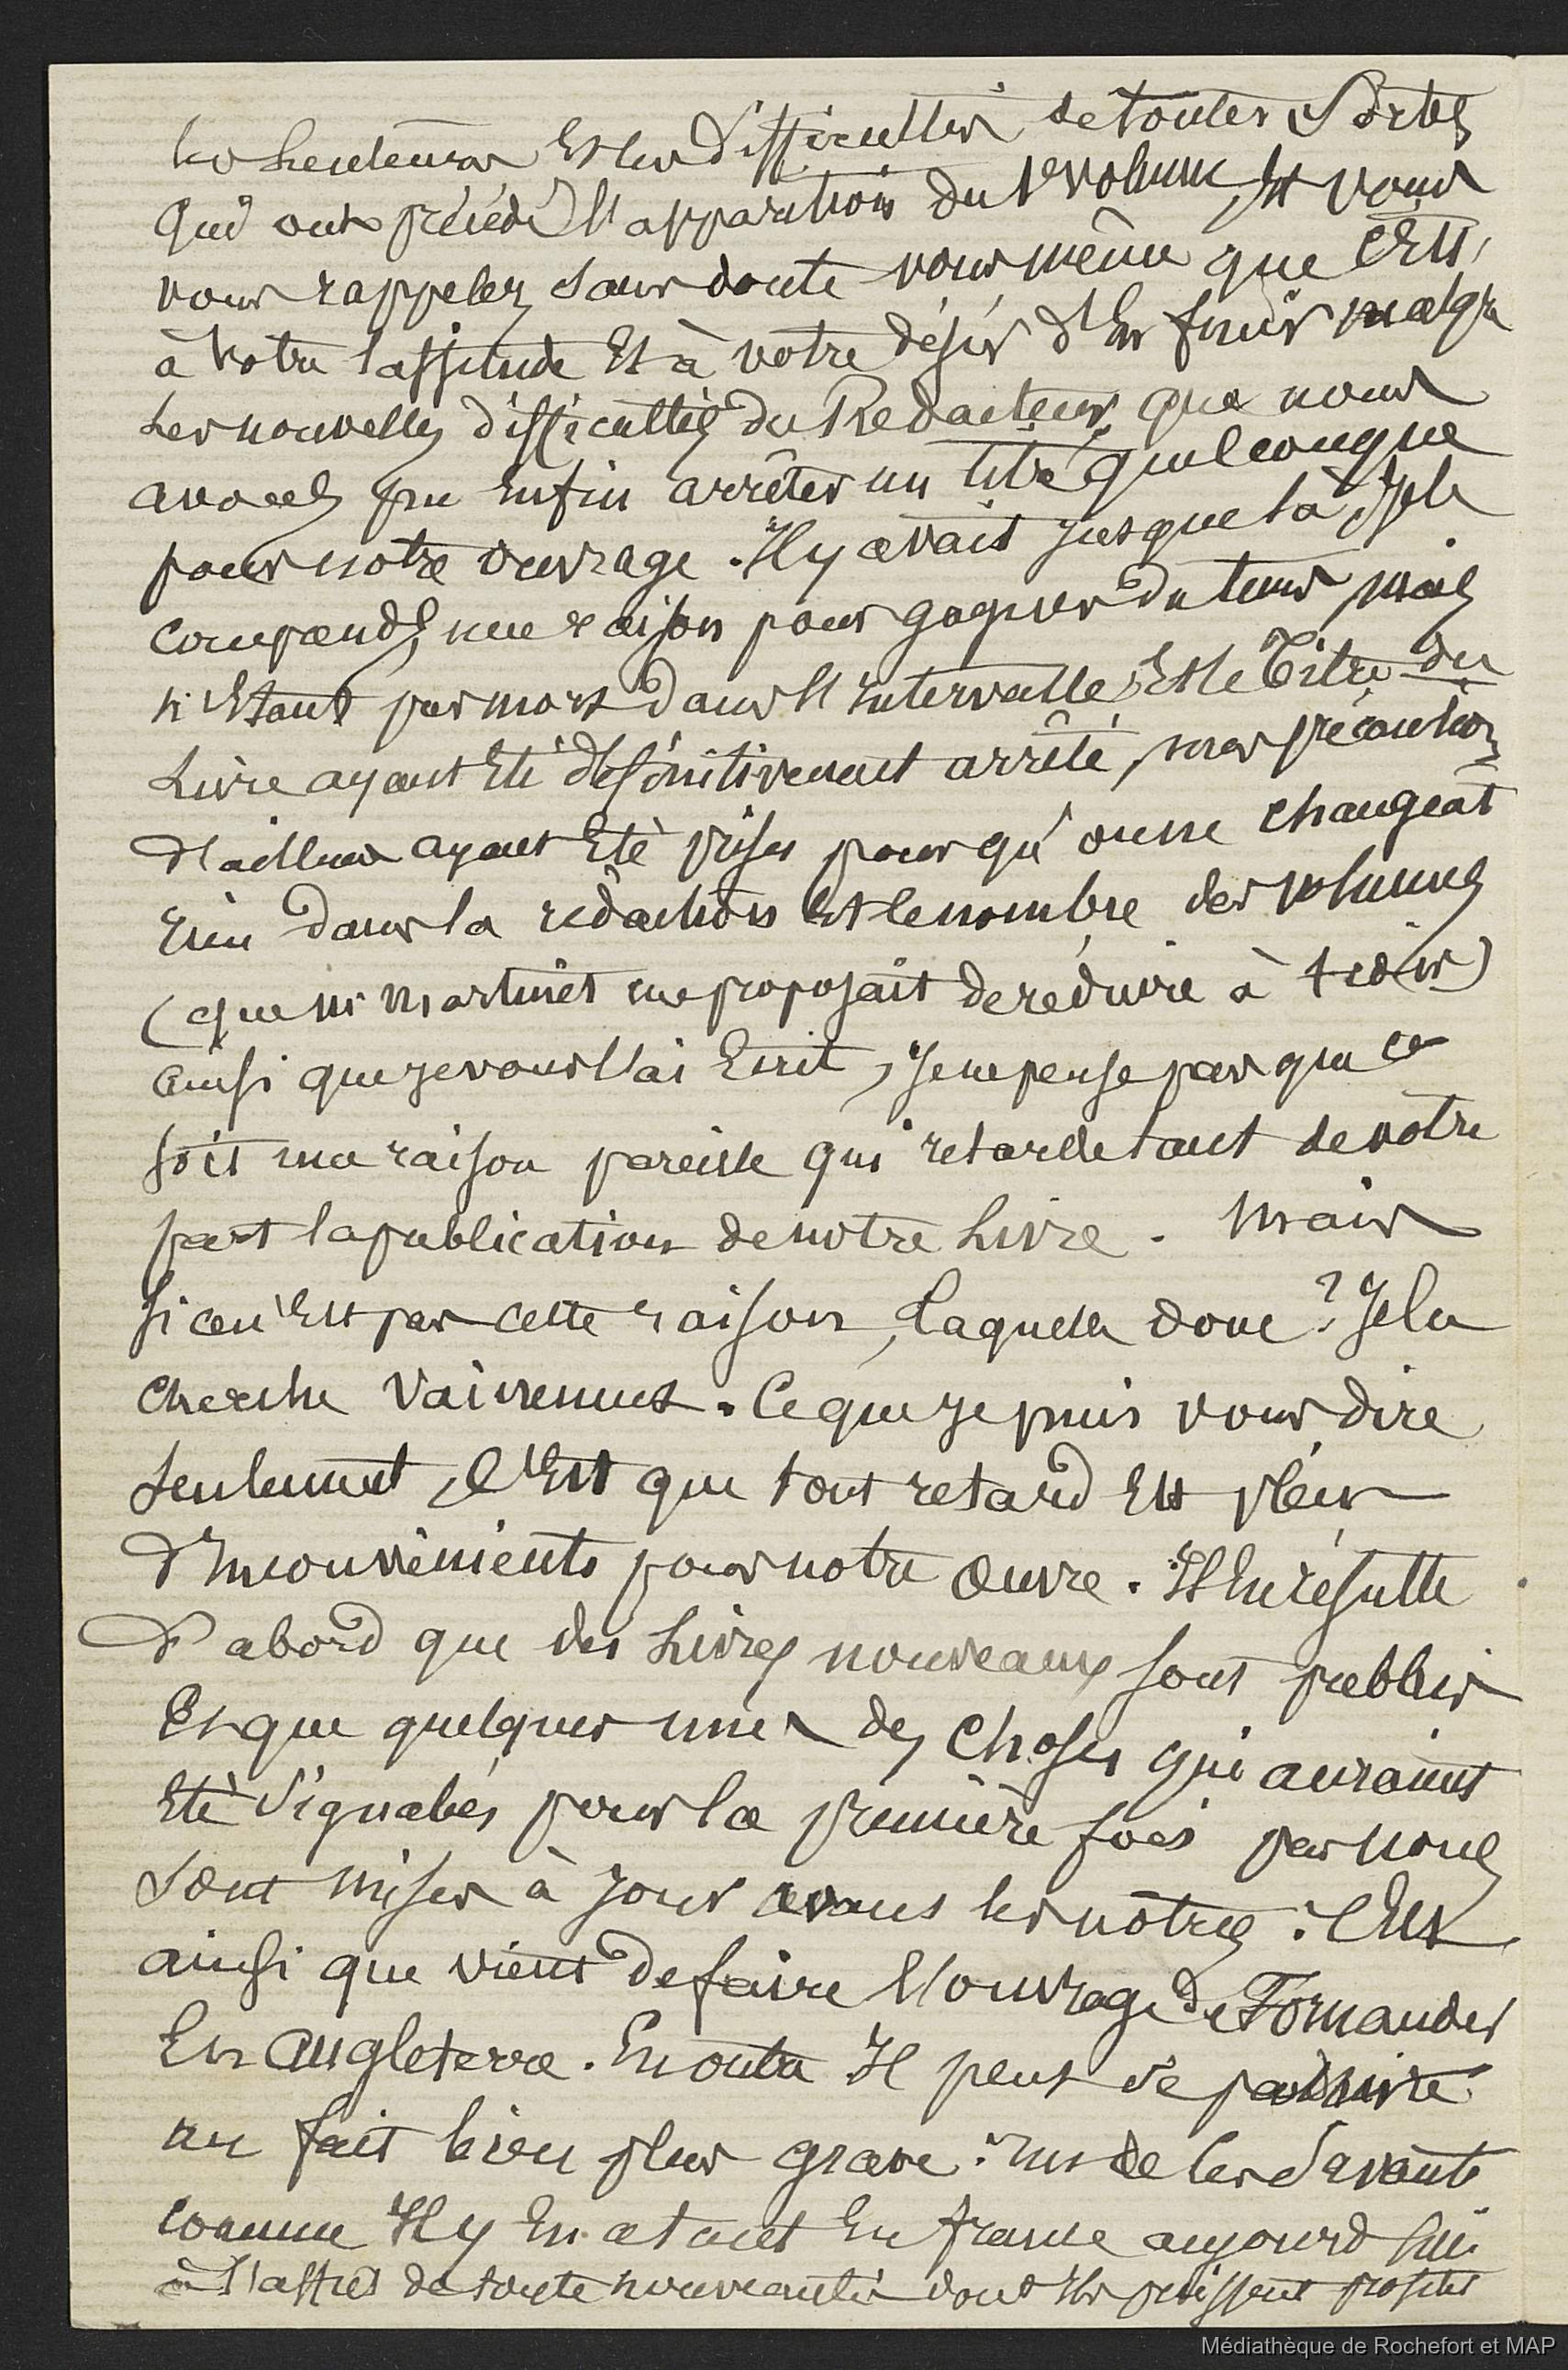 les Lenteurs Et les Difficultés de toutes Sortes
qui ont précédé l'apparition du 1er volume, Et vous
vous rappelez sans doute vous même que C'Est
à votre lassitude Et à votre désir d'En finir malgré
Les nouvelles difficultés du Rédacteur, que nous
avons pu Enfin arrêter un titre quelconque
pour notre ouvrage. Il y avait jusque là, Je le
comprends, une raison pour gagner du tems, mais
n'Etant pas mort dans l'Intervalle, Et le Titre du
Livre ayant Eté définitivement arrêté, mes précautions
d'ailleurs ayant Eté prises pour qu'on ne changeât
rien dans la rédaction Et le nombre des volumes
(que Mr Martinet me proposait de réduire à trois)
ainsi que je vous l'ai Ecrit, Je ne pense pas que ce
soit une raison pareille qui retarde tant de votre
part la publication de notre Livre. Mais
si ce n'Est pas cette raison, Laquelle donc? Je la
cherche vainement. Ce que je puis vous dire
seulement, C'Est que tout retard Est plein
d'Inconvénients pour notre Œuvre. Il En résulte
d'abord que des Livres nouveaux sont publiés
Et que quelques unes des Choses qui auraient
Eté Signalées pour la première fois par nous
sont mises à jour avant les nôtres. C'Est
ainsi que vient de faire l'ouvrage de Fornander
En Angleterre. En outre Il peut se produire
un fait bien plus grave. de ces Savants
comme Il y En a tant En france aujourd'hui
à l'affût de toute nouveauté dont Ils puissent profiter
Médiathèque de Rochefort et MAP